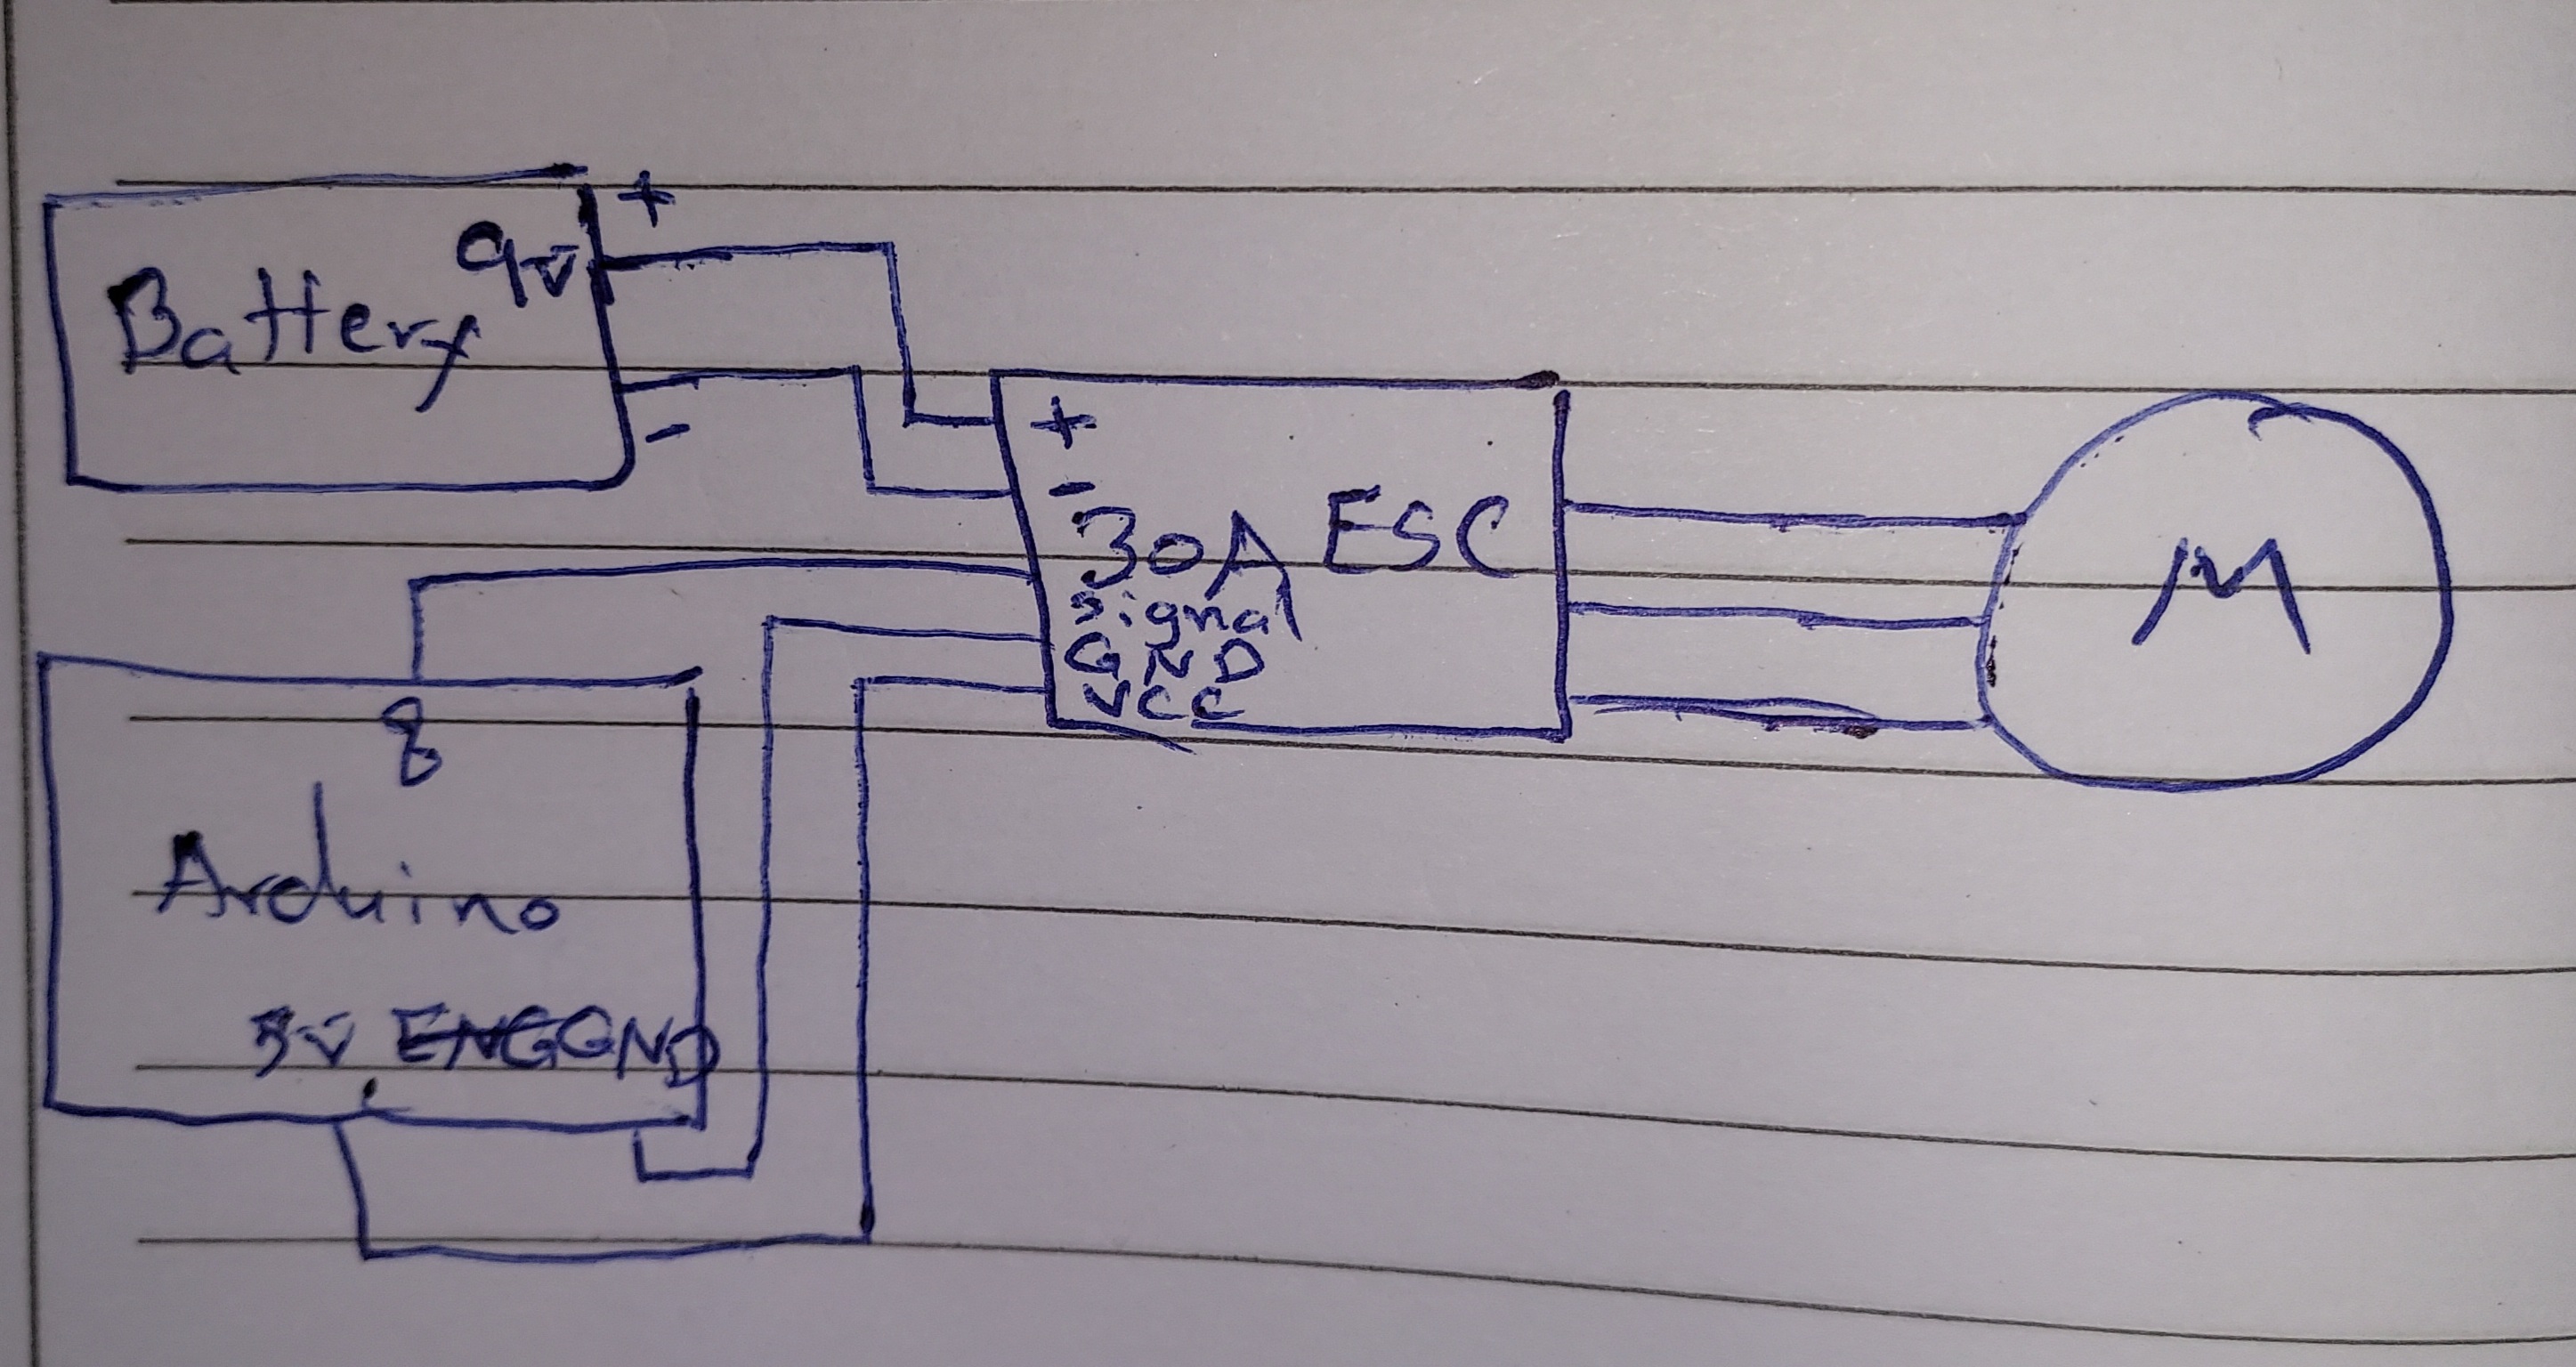 +
9v
Battery
-
+
-
30A ESC
signal
GND
VCC
M
8
Arduino
5v GND